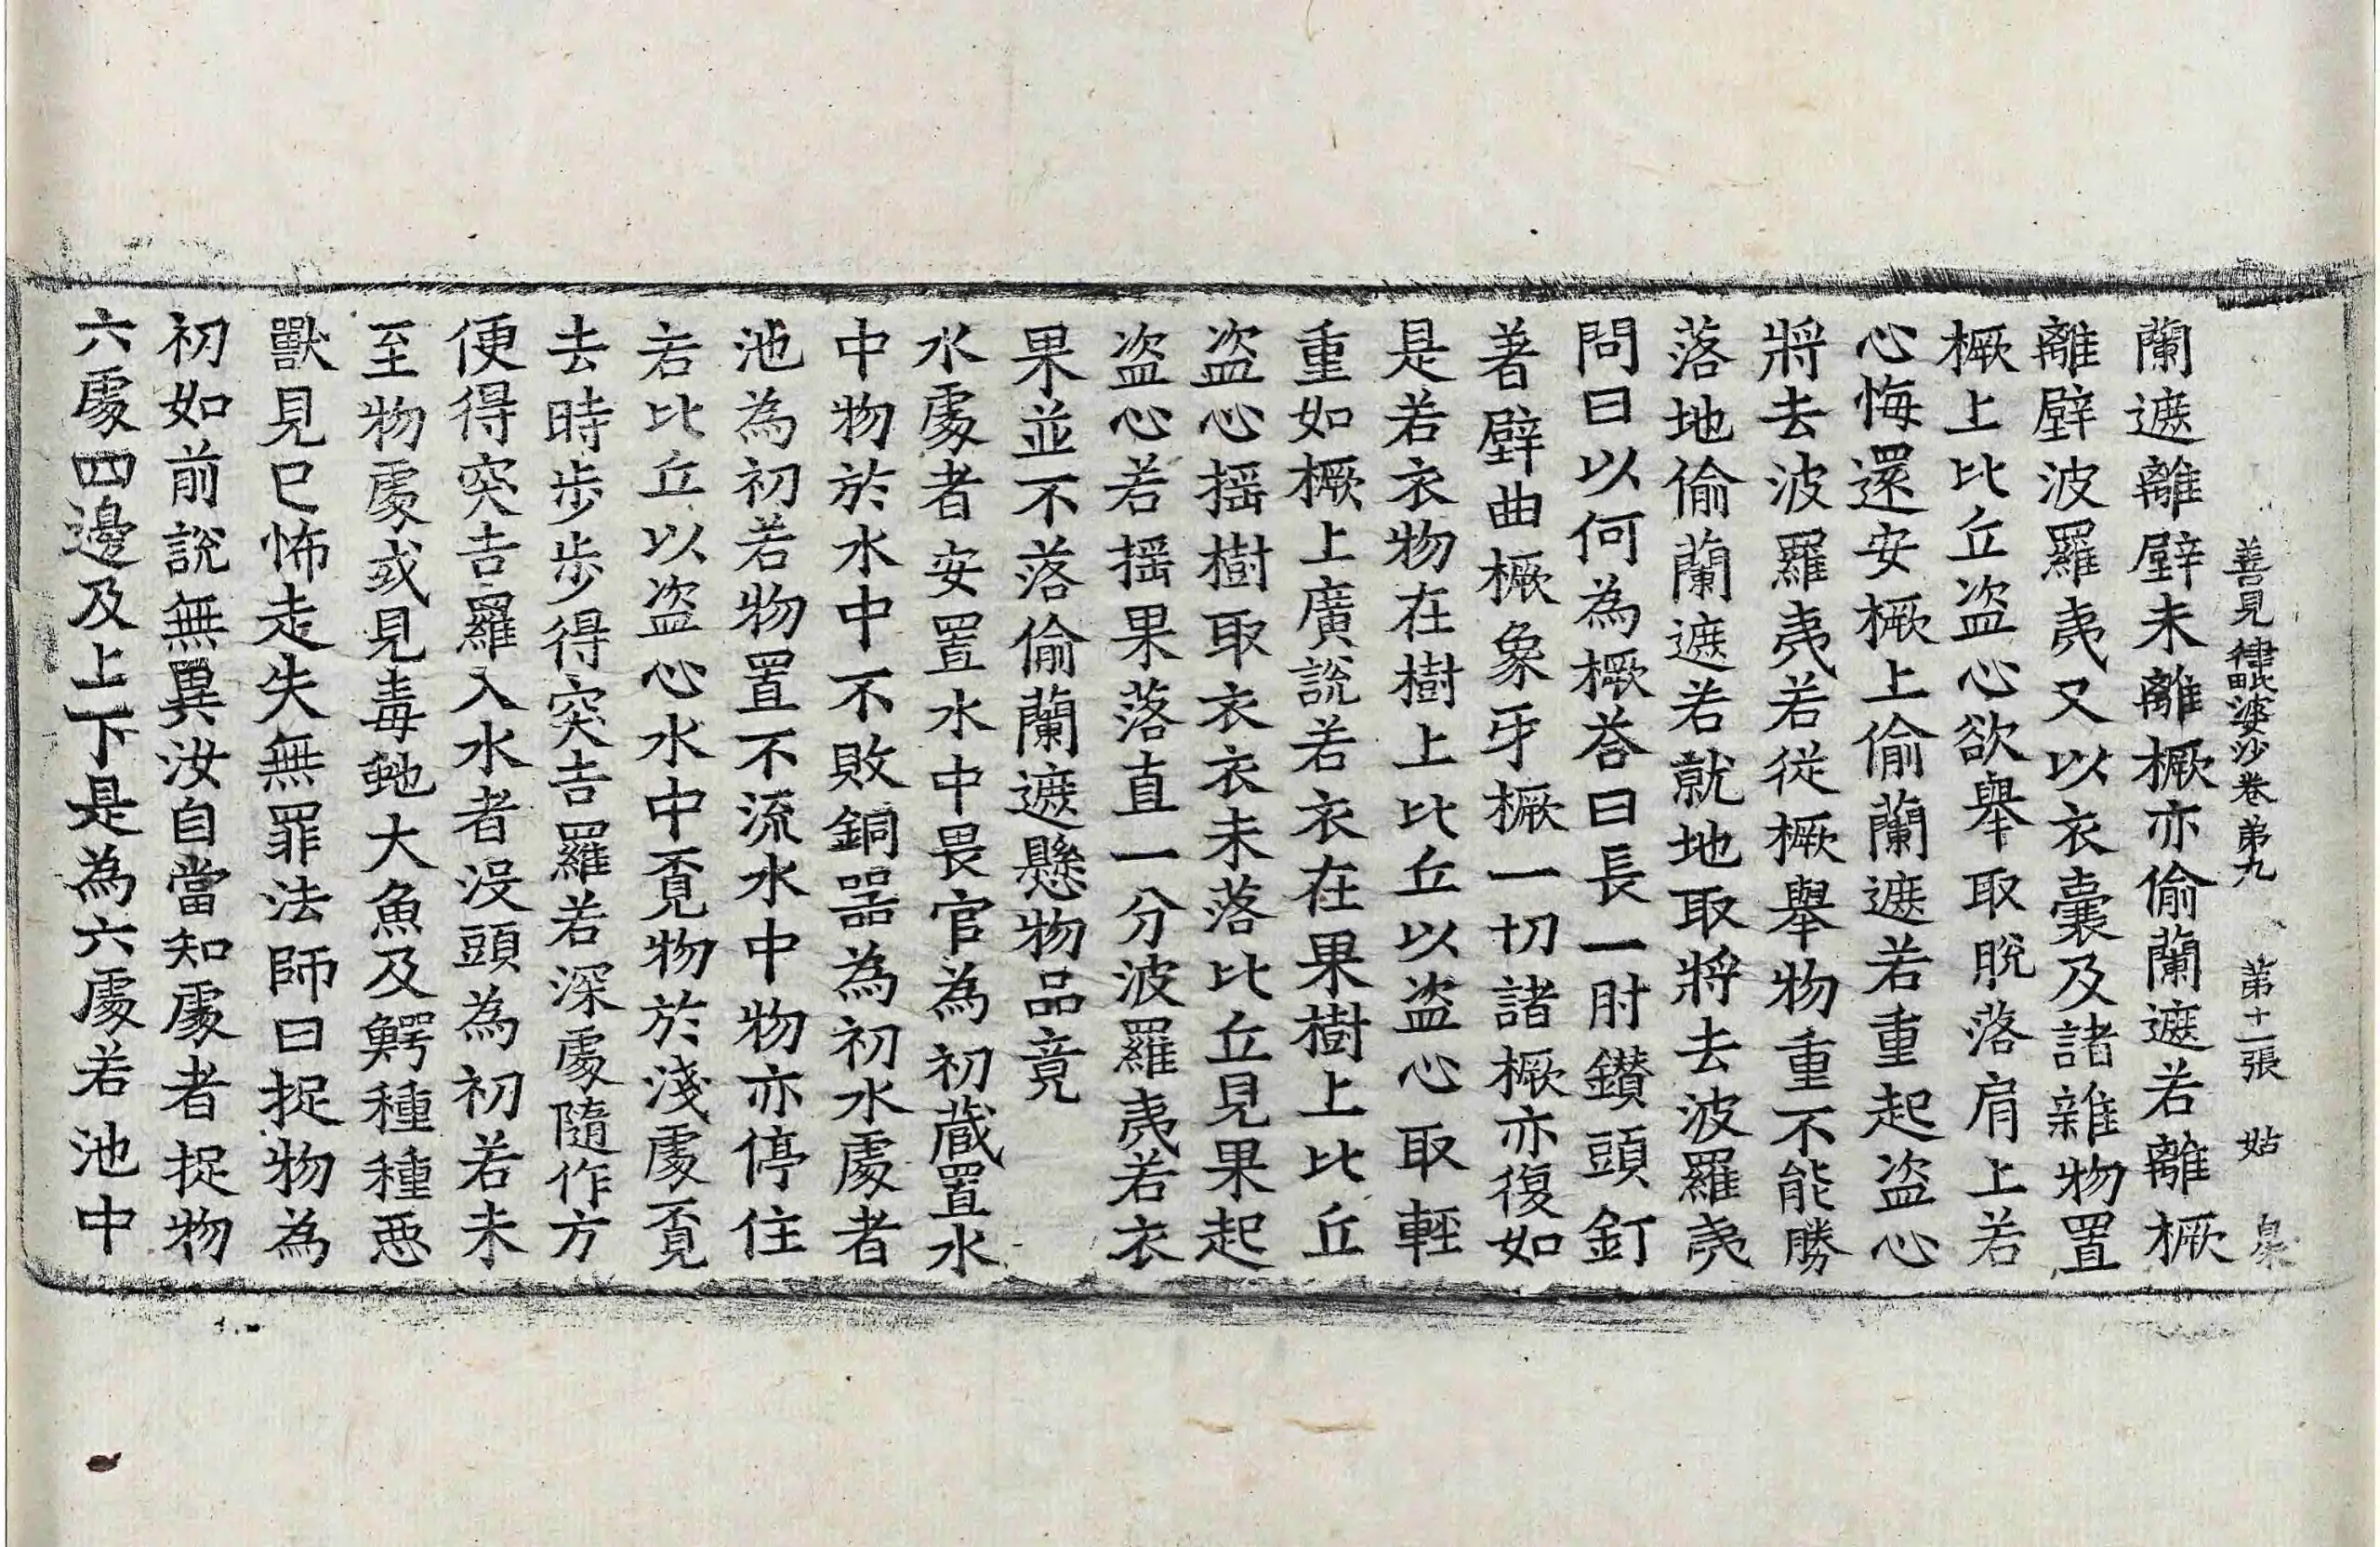 善見律毗婆沙卷第九　第十一張　姑
蘭遮離壁未離橛亦偷蘭遮若離橛
離壁波羅夷又以衣囊及諸雜物置
橛上比丘盗心欲舉取脫落肩上若
心悔還安橛上偷蘭遮若重起盗心
將去波羅夷若從橛舉物重不能勝
落地偷蘭遮若就地取將去波羅夷
問曰以何為橛荅曰長一肘鑚頭釘
著壁曲橛象牙橛一切諸橛亦復如
是若衣物在樹上比丘以盗心取輕
重如橛上廣說若衣在果樹上比丘
盗心揺樹取衣衣未落比丘見果起
盗心若揺果落直一分波羅夷若衣
果並不落偷蘭遮懸物品竟
水處者安置水中畏官為初蔵置水
中物於水中不敗銅器為初水處者
池為初若物置不流水中物亦停住
若比丘以盗心水中覔物於淺處覔
去時步步得突吉羅若深處隨作方
便得突吉羅入水者没頭為初若未
至物處或見毒虵大魚及鰐種種惡
獸見已怖走失無罪法師曰捉物為
初如前說無異汝自當知處者捉物
六處四邊及上下是為六處若池中